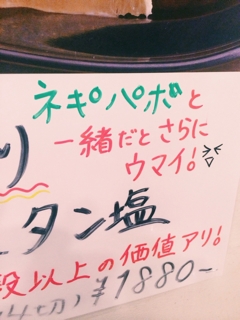 ネギパボと
一緒だとさらに
ウマイ!
り
タン塩
段以上の価値アリ!
4切) ¥1880-